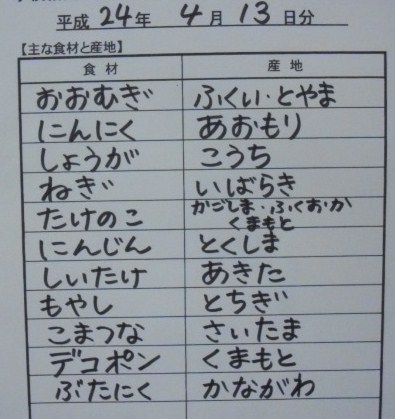 平成 24年 4月 13日分
【主な食材と産地】
食材 産地
おおむぎ ふくい・とやま
にんにく あおもり
しょうが こうち
ねぎ いばらき
たけのこ かごしま・ふくおか
くまもと
にんじん とくしま
しいたけ あきた
もやし とちぎ
こまつな さいたま
デコポン くまもと
ぶたにく かながわ